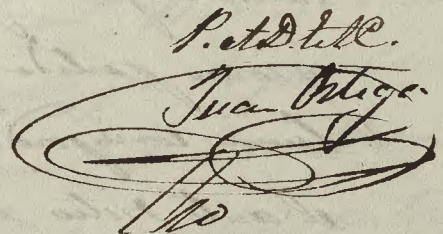 P. A. D. L. C.
Juan Ortega